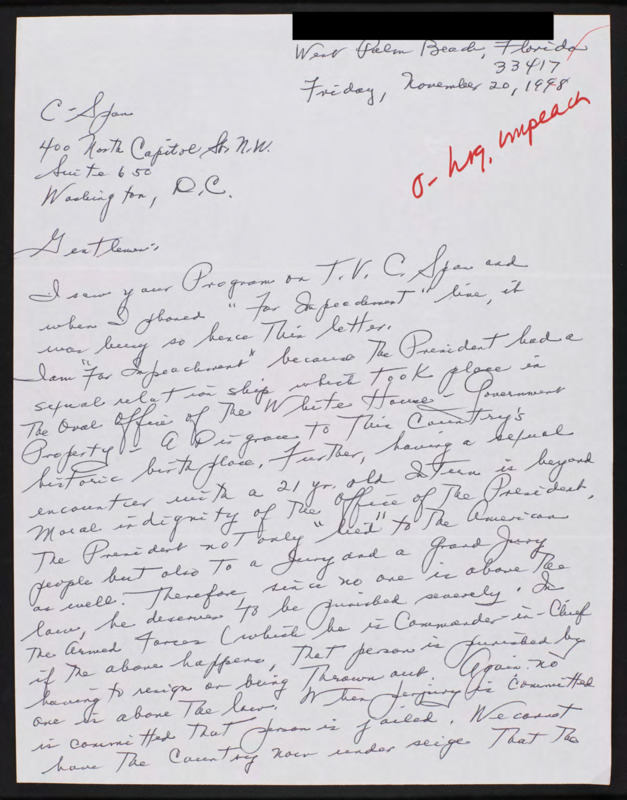 West Palm Beach, Florida
33417
Friday, November 20, 1998
o- hrg, impeach
C-Span
400 North Capitol St. N.W.
Suite 650
Washington, D.C.
Gentlemen:
I saw your Program on T.V. C. Span and
when I phoned "For Impeachment" line, it
was busy so hence This letter.
I am "For Impeachment" because The President had a
sexual relationship which took place in
The Oval Office of The White House - Government
Property - A Disgrace to This Country's
historic birth place. Further, having a sexual
encounter with a 21 yr. old Intern is beyond
Moral indignity of The Office of The President.
The President not only "lied" to The American
people but also to a Jury and a Grand Jury
as well. Therefore, since no one is above The
law, he deserves to be punished severely. In
The Armed Forces (which he is Commander-in-Chief
if the above happens, That person is punished by
having to resign or being Thrown out. Again no
one is above The law. When perjury is committed
is committed That person is jailed. We cannot
have The Country now under seige That The